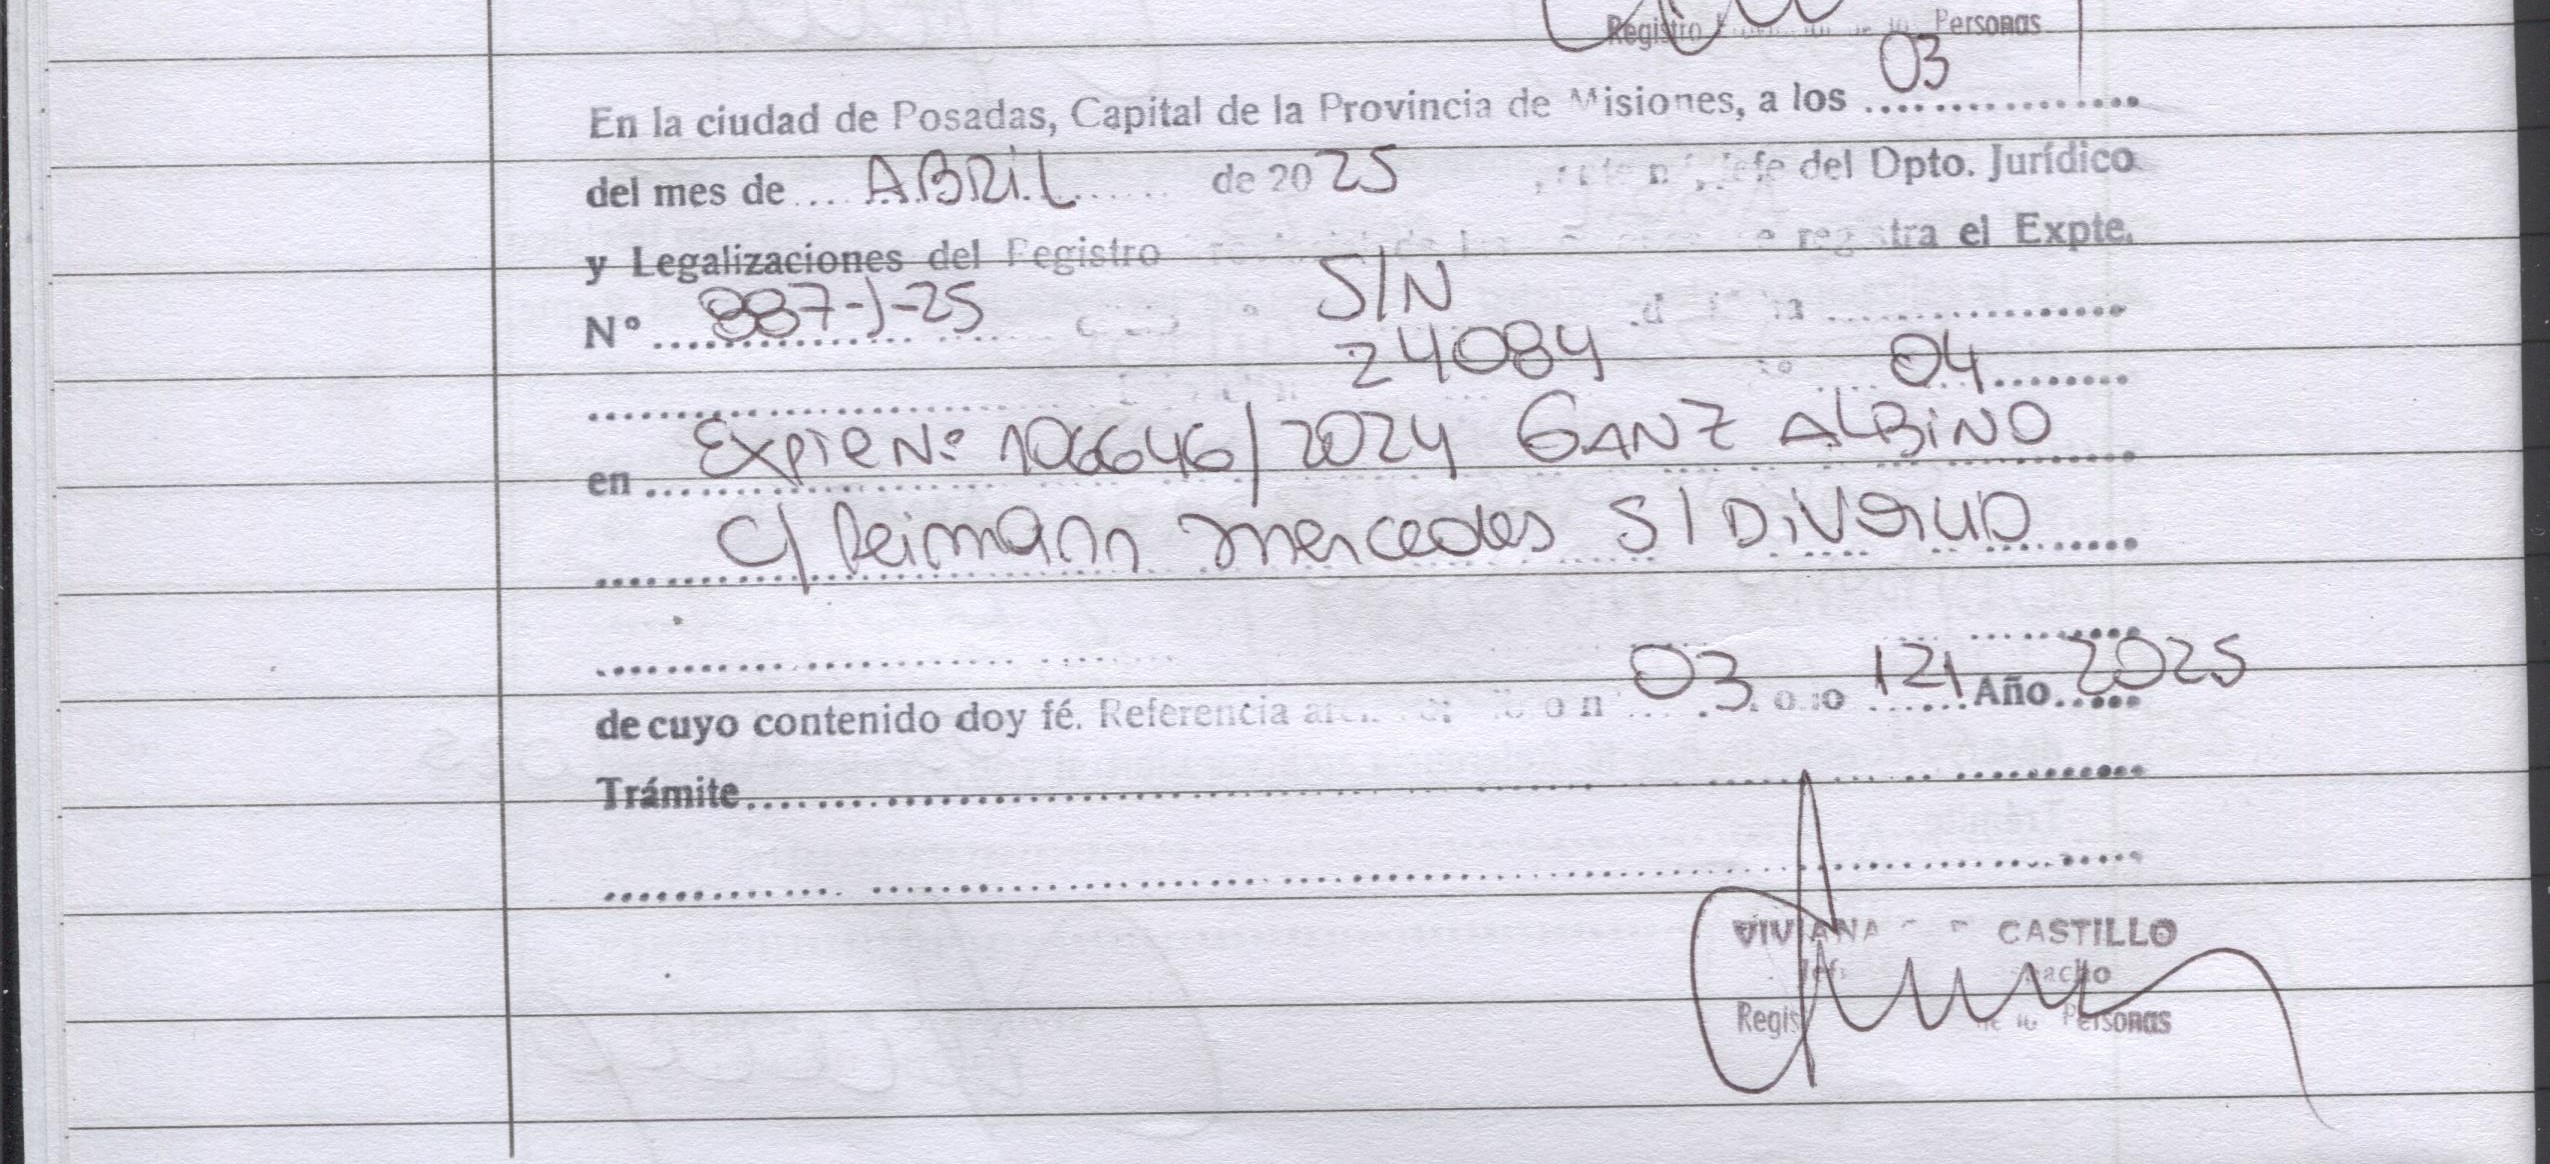 Registro Personas
En la ciudad de Posadas, Capital de la Provincia de Misiones, a los 03
del mes de ABRiL de 2025 Jefe del Dpto. Jurídico
y Legalizaciones del Registro registra el Expte.
Nº 887-J-25 S/N
24084 04
en Expte Nº 106646/2024 GANZ ALBiNO
c/ Reimann mercedes S/Divorcio
de cuyo contenido doy fé. Referencia 03 121 Año 2025
Trámite
VIVIANA CASTILLO
Personas